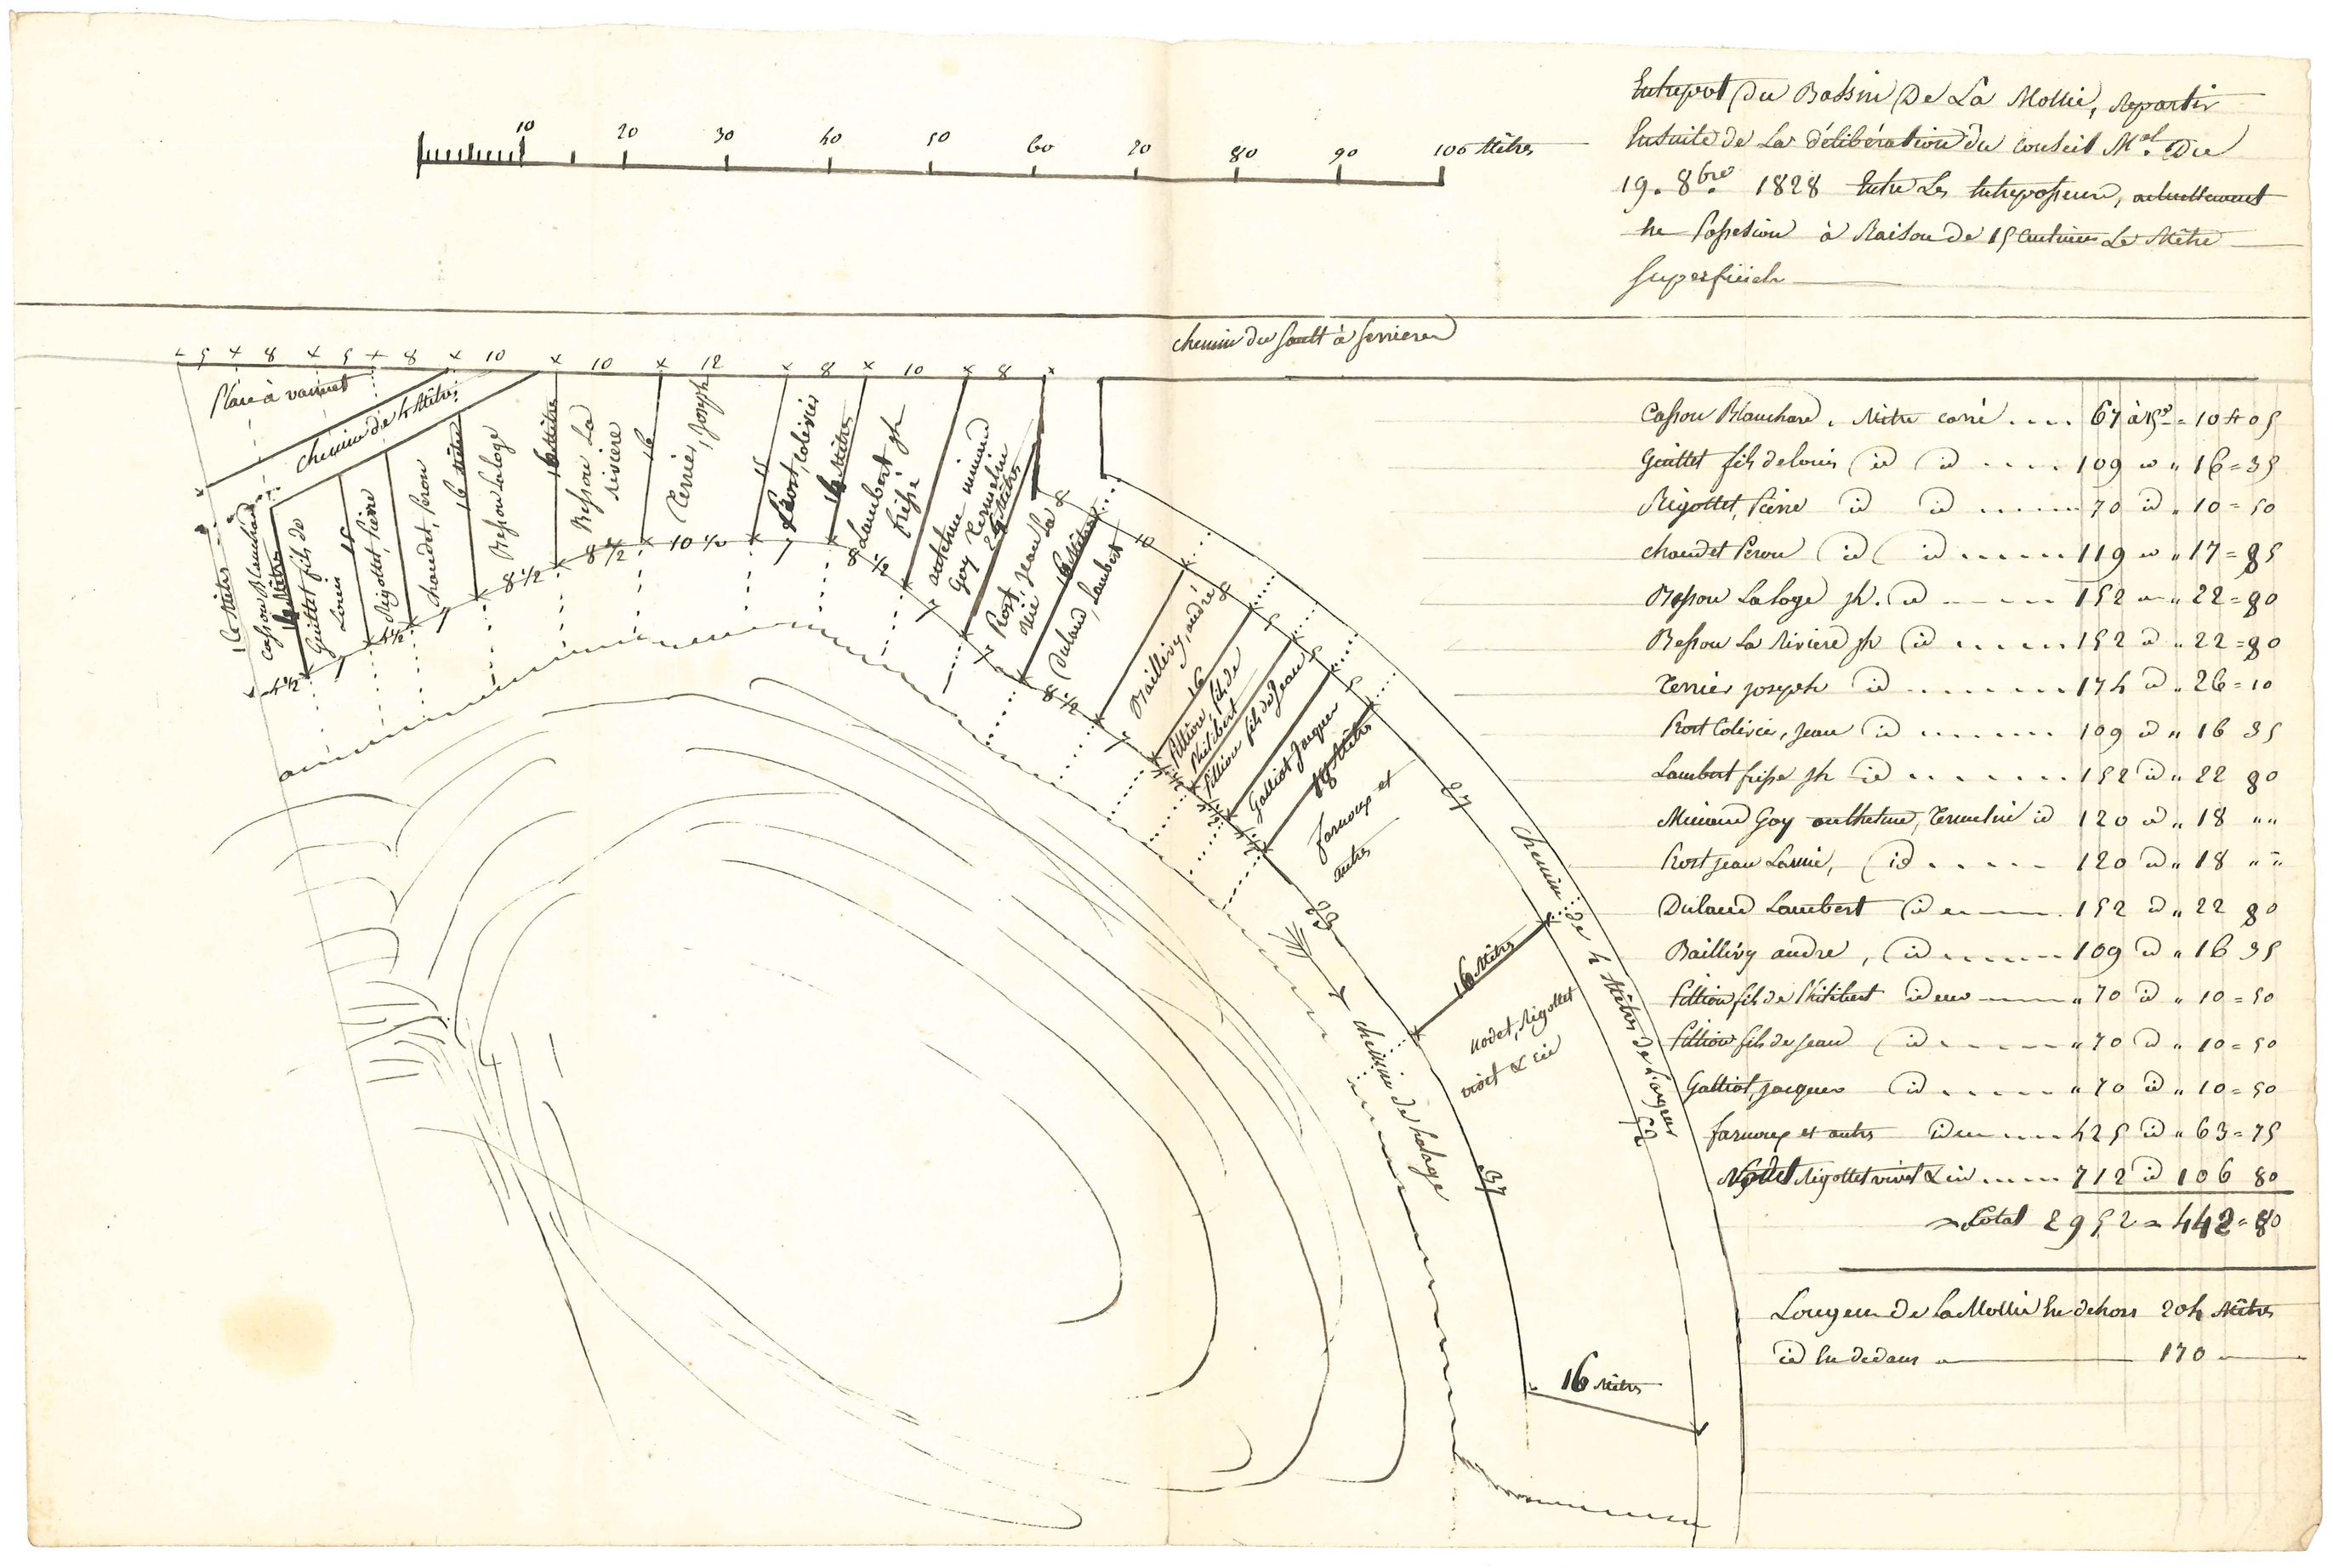 Entrepot Du Bassin De La Mollie, Repartir
Ensuite de La délibération du Conseil Mal. Du
19. 8bre 1828 Entre Les Entreposeurs, actuellement
En Possession à Raison de 15 Centimes Le Mêtre
Superficiel
10 20 30 40 50 60 70 80 90 100 Mêtres
chemin du Sault à Serrieres
5 8 5 8 10 10 12 8 10 8
Place à
chemin de 4 Mêtres
16 Mêtres
Casson Blanchard
16 Mêtres
Guittet fils de
Louis 15
Rigottet, Pierre
chaudet, Peron
16 Mêtres
Besson Laloge
16 Mêtres
Besson La
riviere
16
Terrier, Joseph
15
Rort, Colivier
16 Mêtres
Lambert jh
frisse
anthelme minand
Goy
Rort, Jean La
mie
16 Mêtres
Duland, Lambert
Baillivy, andré
16
Fillion, fils de
Philibert
fillion fils de Jean
Galliot Jacques
Mêtres
et
autres
4 1/2 7 4 1/2 7 8 1/2 8 1/2 10 1/2 7 8 1/2 7 7 8 1/2 7 4 1/2 4 1/2 4 1/2
8 10 8 5 5 5
27
16 Mêtres
nodet, Rigottet
vivet & cie
chemin de 4 Mêtres de Largeur
52
chemin de halage
37
16 Mêtres
Casson Blanchard. Mêtre carré .... 67 à 15 = 10 # 05
Guittet fils de Louis id id ..... 109 id " 16 = 35
Rigottet, Pierre id id ...... 70 id " 10 = 50
chaudet Peron id id ..... 119 id " 17 = 85
Besson Laloge jh. id .... 152 id " 22 = 80
Besson La Riviere jh id ..... 152 id " 22 = 80
Terrier joseph id ....... 174 id " 26 = 10
Rort Colivier, Jean id ....... 109 id " 16 35
Lambert frisse jh id ....... 152 id " 22 80
Minand Goy anthelme, id 120 id " 18 " "
Rort Jean Lamie, id ..... 120 id " 18 " "
Duland Lambert id 152 id " 22 80
Baillivy andre, id ...... 109 id " 16 35
Fillion fils de Philibert idem " 70 id " 10 = 50
Fillion fils de Jean id ..... " 70 id " 10 = 50
Galliot, Jacques id ..... " 70 id " 10 = 50
et autres idem .... 425 id " 63 = 75
Nodet Rigottet vivet & cie ..... 712 id 106 80
= Total 2952 = 442 = 80
Longeur De la Mollie En dehors 204 Mêtres
id En dedans 170